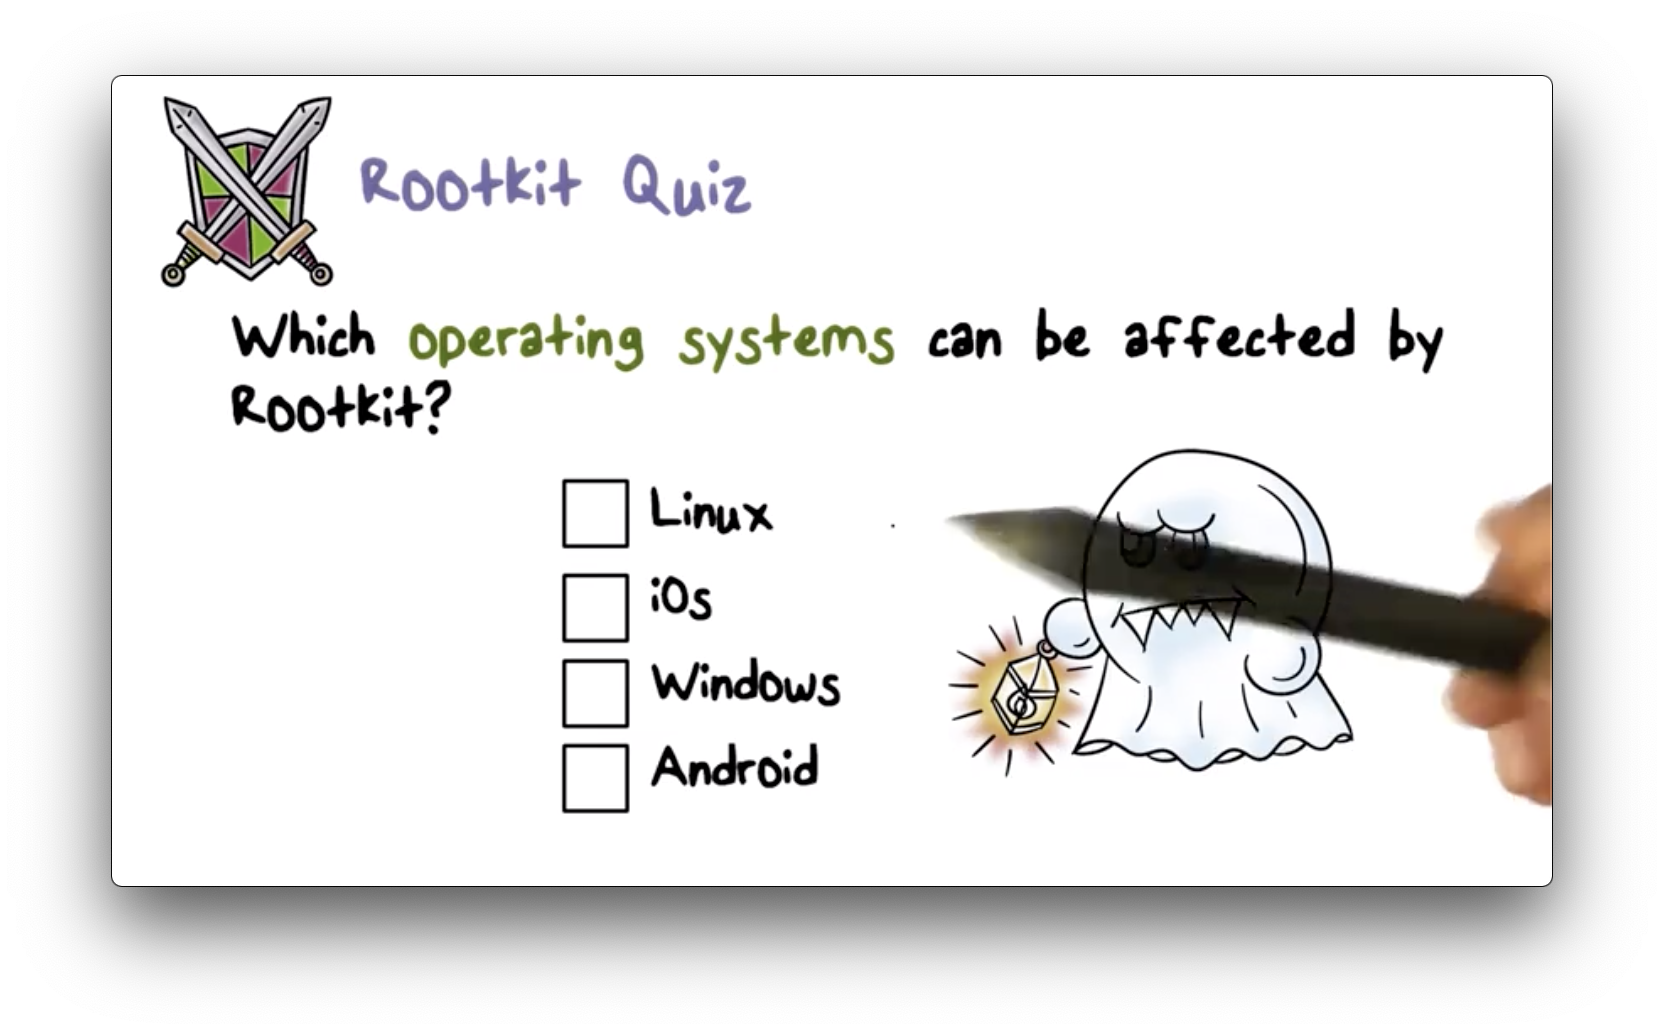 Rootkit Quiz
Which operating systems can be affected by
Rootkit?
Linux
iOs
Windows
Android